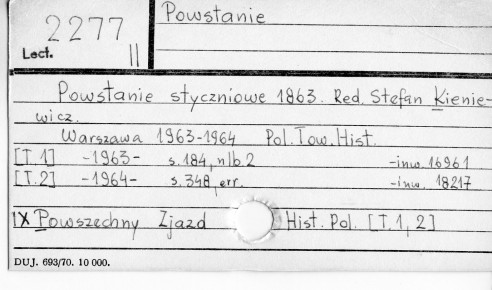 2277
Lect. II
Powstanie
Powstanie styczniowe 1863. Red. Stefan Kienie-
wicz.
Warszawa 1963-1964 Pol. Tow. Hist.
[T. 1] -1963- s. 184, nlb. 2 -inw. 16961
[T. 2] -1964- s. 348, err. -inw. 18217
IX Powszechny Zjazd Hist. Pol. [T. 1, 2]
DUJ. 693/70. 10 000.